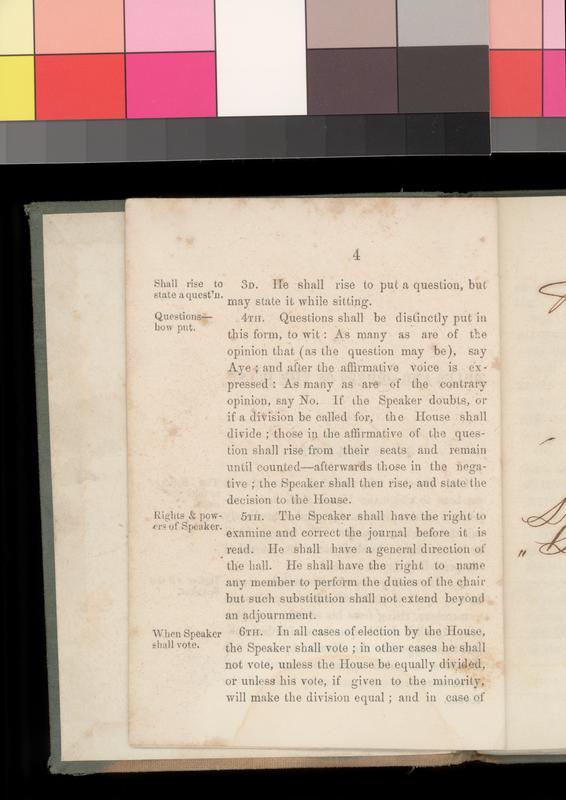 4
Shall rise to
state a quest'n.
3D. He shall rise to put a question, but
may state it while sitting.
Questions—
how put.
4TH. Questions shall be distinctly put in
this form, to wit : As many as are of the
opinion that (as the question may be), say
Aye ; and after the affirmative voice is ex-
pressed : As many as are of the contrary
opinion, say No. If the Speaker doubts, or
if a division be called for, the House shall
divide ; those in the affirmative of the ques-
tion shall rise from their seats and remain
until counted—afterwards those in the nega-
tive ; the Speaker shall then rise, and state the
decision to the House.
Rights & pow-
ers of Speaker.
5TH. The Speaker shall have the right to
examine and correct the journal before it is
read. He shall have a general direction of
the hall. He shall have the right to name
any member to perform the duties of the chair
but such substitution shall not extend beyond
an adjournment.
When Speaker
shall vote.
6TH. In all cases of election by the House,
the Speaker shall vote ; in other cases he shall
not vote, unless the House be equally divided,
or unless his vote, if given to the minority,
will make the division equal ; and in case of